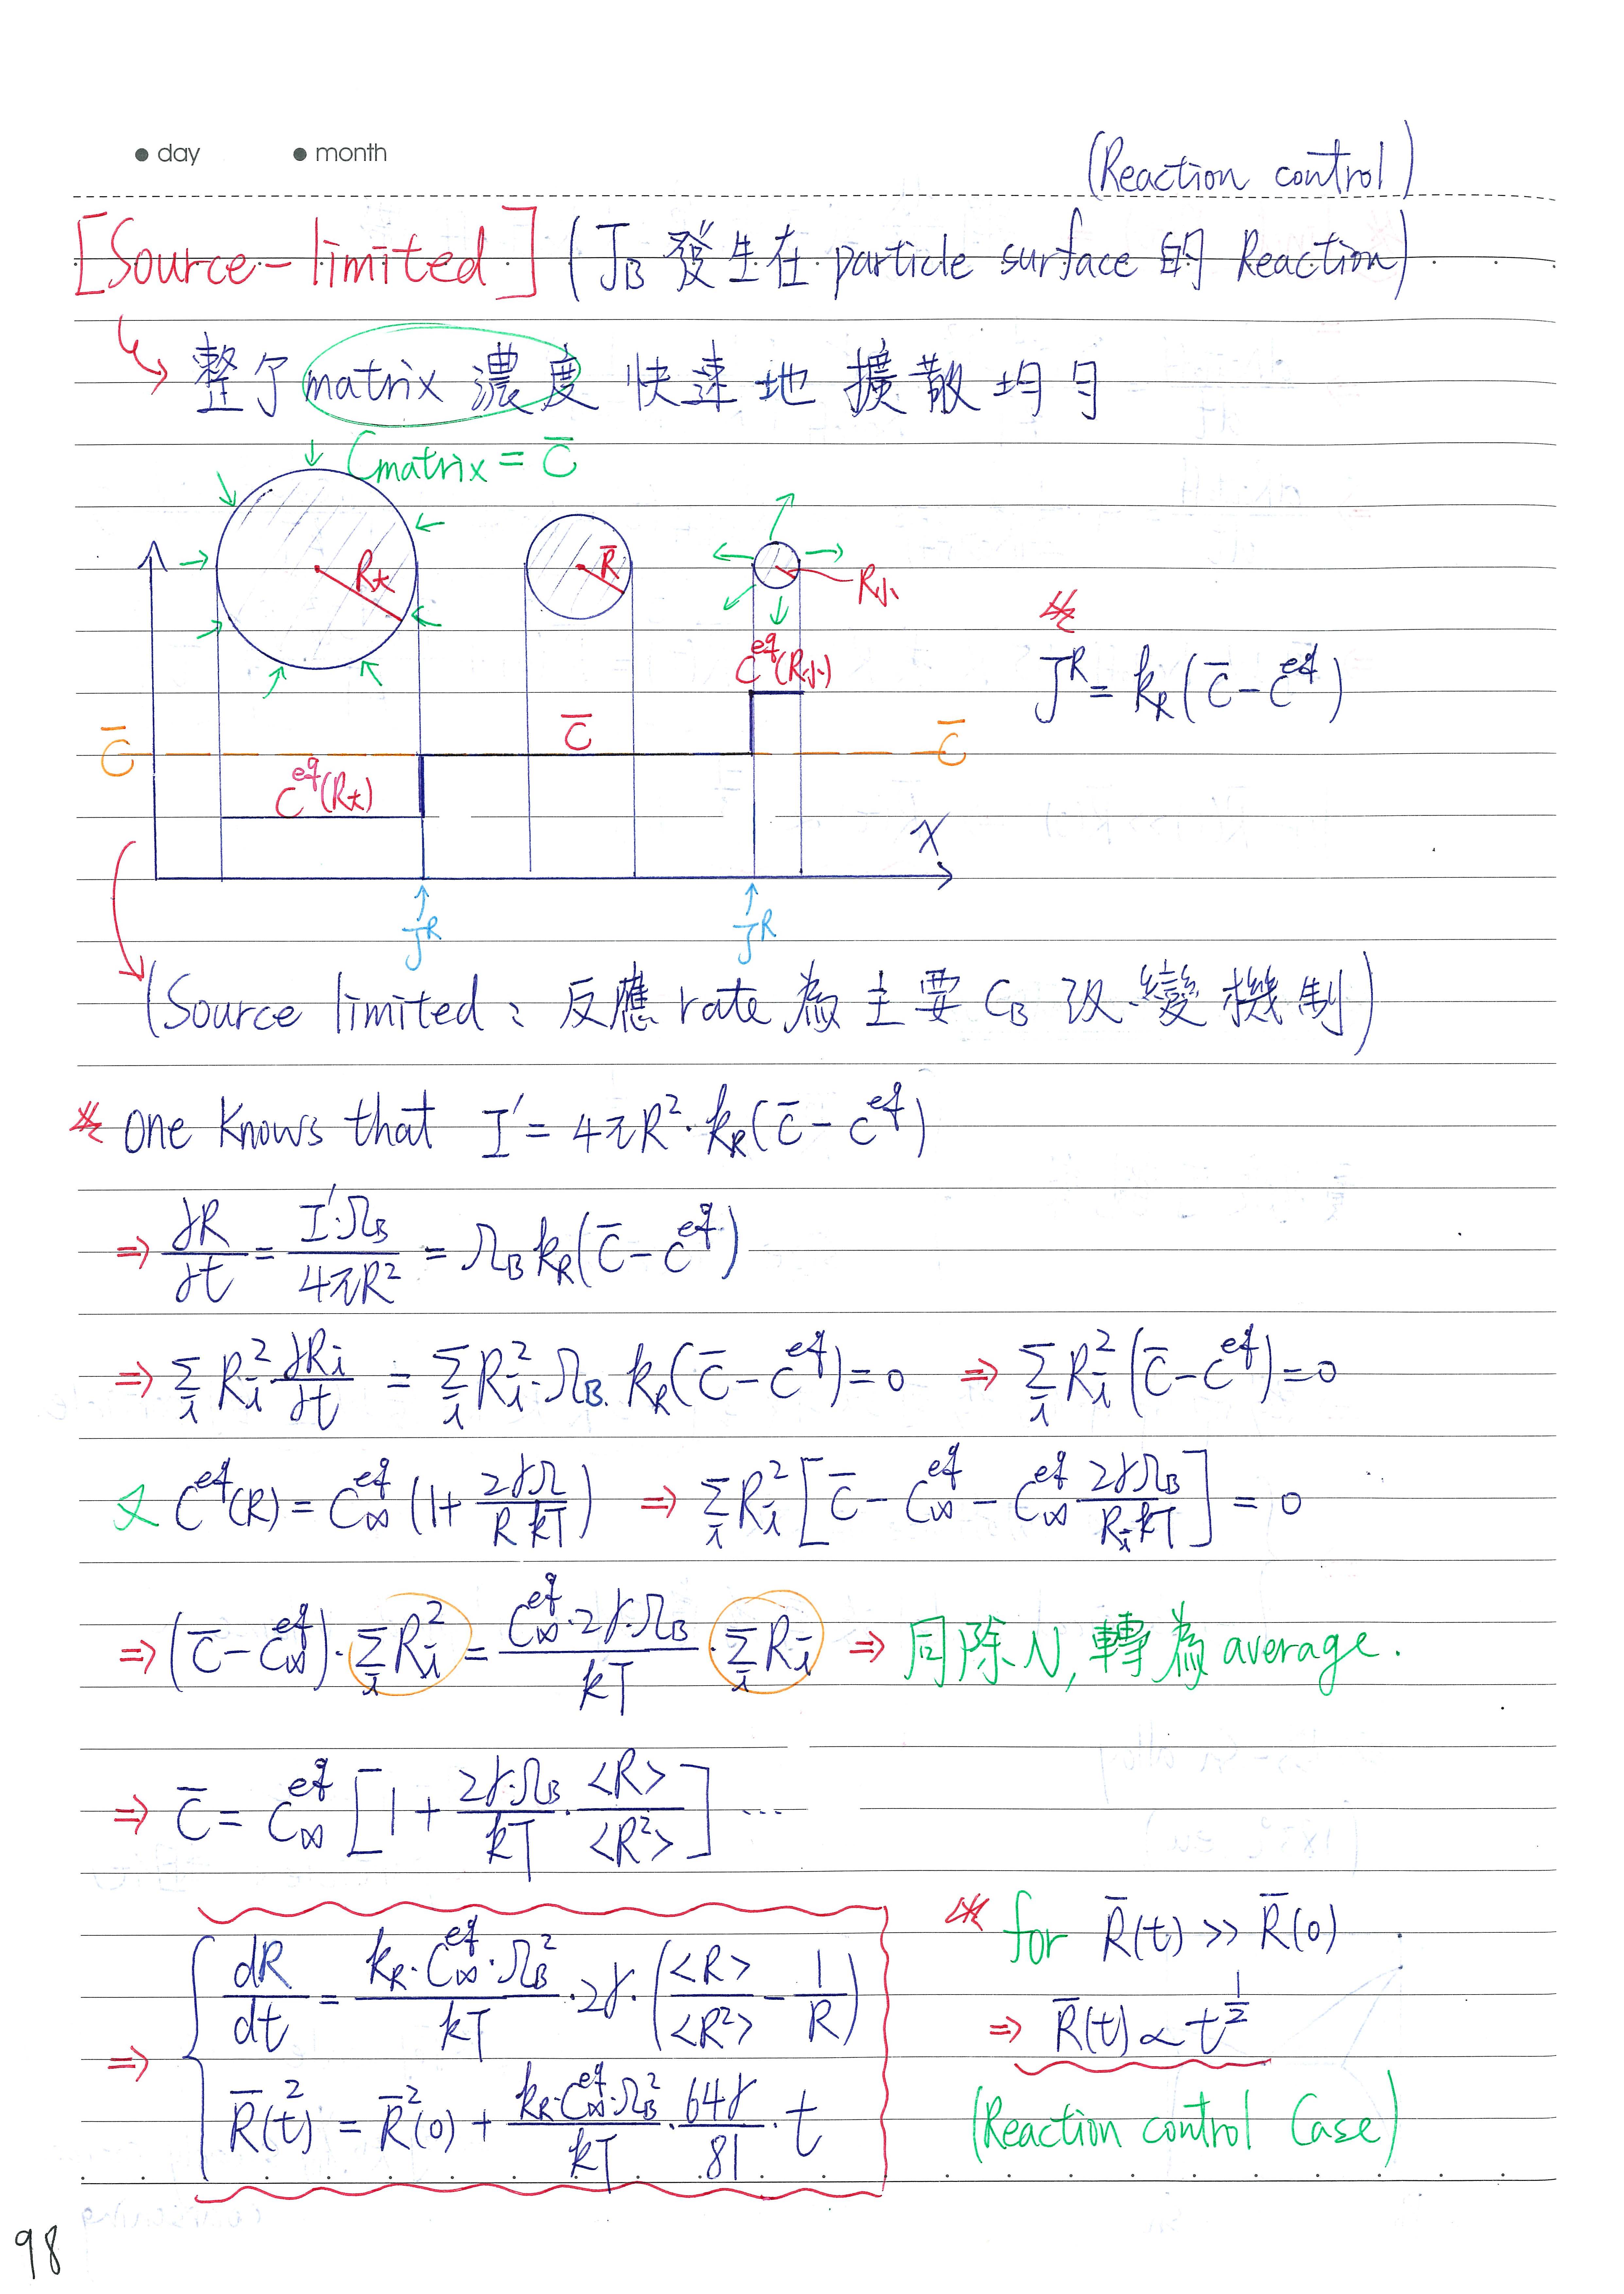 ● day ● month
(Reaction control)
[Source-limited] (J_B 發生在 particle surface 的 Reaction)
整个 matrix 濃度 快速地 擴散均勻
C_matrix = C̄
R大
R̄
R小
C^eq(R小)
J^R = k_R(C̄ - C^eq)
C̄
C̄
C̄
C^eq(R大)
X
J^R
J^R
(Source limited: 反應 rate 為主要 C_B 改變機制)
※ One knows that I' = 4πR²·k_R(C̄ - C^eq)
⇒ ∂R/∂t = I'·Ω_B/4πR² = Ω_B k_R(C̄ - C^eq)
⇒ Σ_i R_i² ∂R_i/∂t = Σ_i R_i²·Ω_B·k_R(C̄ - C^eq) = 0 ⇒ Σ_i R_i²(C̄ - C^eq) = 0
又 C^eq(R) = C_∞^eq (1 + 2γΩ/R kT) ⇒ Σ_i R_i² [C̄ - C_∞^eq - C_∞^eq 2γΩ_B/R_i kT] = 0
⇒ (C̄ - C_∞^eq)·Σ_i R_i² = C_∞^eq·2γ·Ω_B/kT · Σ_i R_i ⇒ 同除N, 轉為 average.
⇒ C̄ = C_∞^eq [1 + 2γ·Ω_B/kT · <R>/<R²>] ...
⇒ { dR/dt = k_R·C_∞^eq·Ω_B²/kT · 2γ·(<R>/<R²> - 1/R)
R̄²(t) = R̄²(0) + k_R·C_∞^eq·Ω_B²/kT · 64γ/81 · t
※ for R̄(t) >> R̄(0)
⇒ R̄(t) ∝ t^½
(Reaction control Case)
98